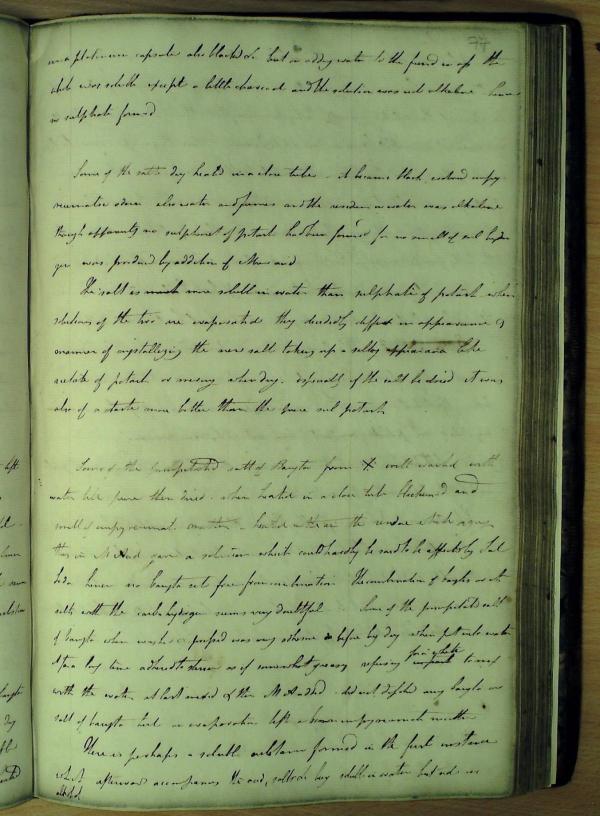 77
in a platinum capsule also blackened but on adding water to the fused mass the
whole was soluble except a little charcoal and the solution was not alkaline hence
no sulphate formed
Some of the salt dry heated in a close tube it became black evolved empy
reumatic odour also water and fumes and the residue in water was alkaline
though apparently no sulphuret of potash had been formed for no smell of sul hydro
gen was produced by addition of Mur acid
The salt is much more soluble in water than sulphate of potash when
solutions of the two are evaporated they decidedly differ in appearance &
manner of crystallizing the new salt taking up a silky appearance like
acetate of potash or when dry. especially if the salt be dried it was
also of a taste more bitter than the pure sul potash
Some of the precipitated salt of Baryta from X well washed with
water till pure then dried - when heated in a close tube blackened and
smell of empyreumatic matter - heated in the air the residue
this in M Acid gave a solution which could hardly be said to be affected by Sul
Soda hence no baryta set free from combination The combination of baryta in the
salt with the carbo hydrogen seems very doubtful Some of the precipitated salt
of baryta when washed & was very adhesive before being dry when put into water
& for a long time adhered to as if somewhat greasy refusing for a while to mix
with the water at last mixed & then M Acid did not dissolve any baryta or
salt of baryta but on evaporation left a brown empyreumatic matter
There is perhaps a soluble substance formed in the first instance
which afterwards accompanies the acid, salts being soluble in water but not in
alcohol